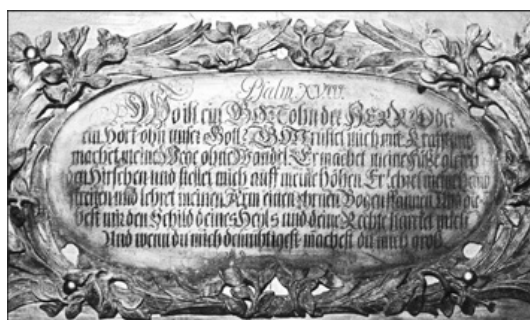 Psalm XVIII.
Wo ist ein GOtt ohn der HERR Oder
ein Hort ohn unser Gott? GOtt rüstet mich mit Krafft und
machet meine Wege ohne Wandel. Er machet meine Füße gleich
den Hirschen und stellet mich auff meine Höhen Er lehret meine Hand
streiten und lehret meinen Arm einen ehrnen Bogen spannen Und gie-
best mir den Schild deines Heyls und deine Rechte stärcket mich
Und wenn du mich demühtigest machest du mich groß